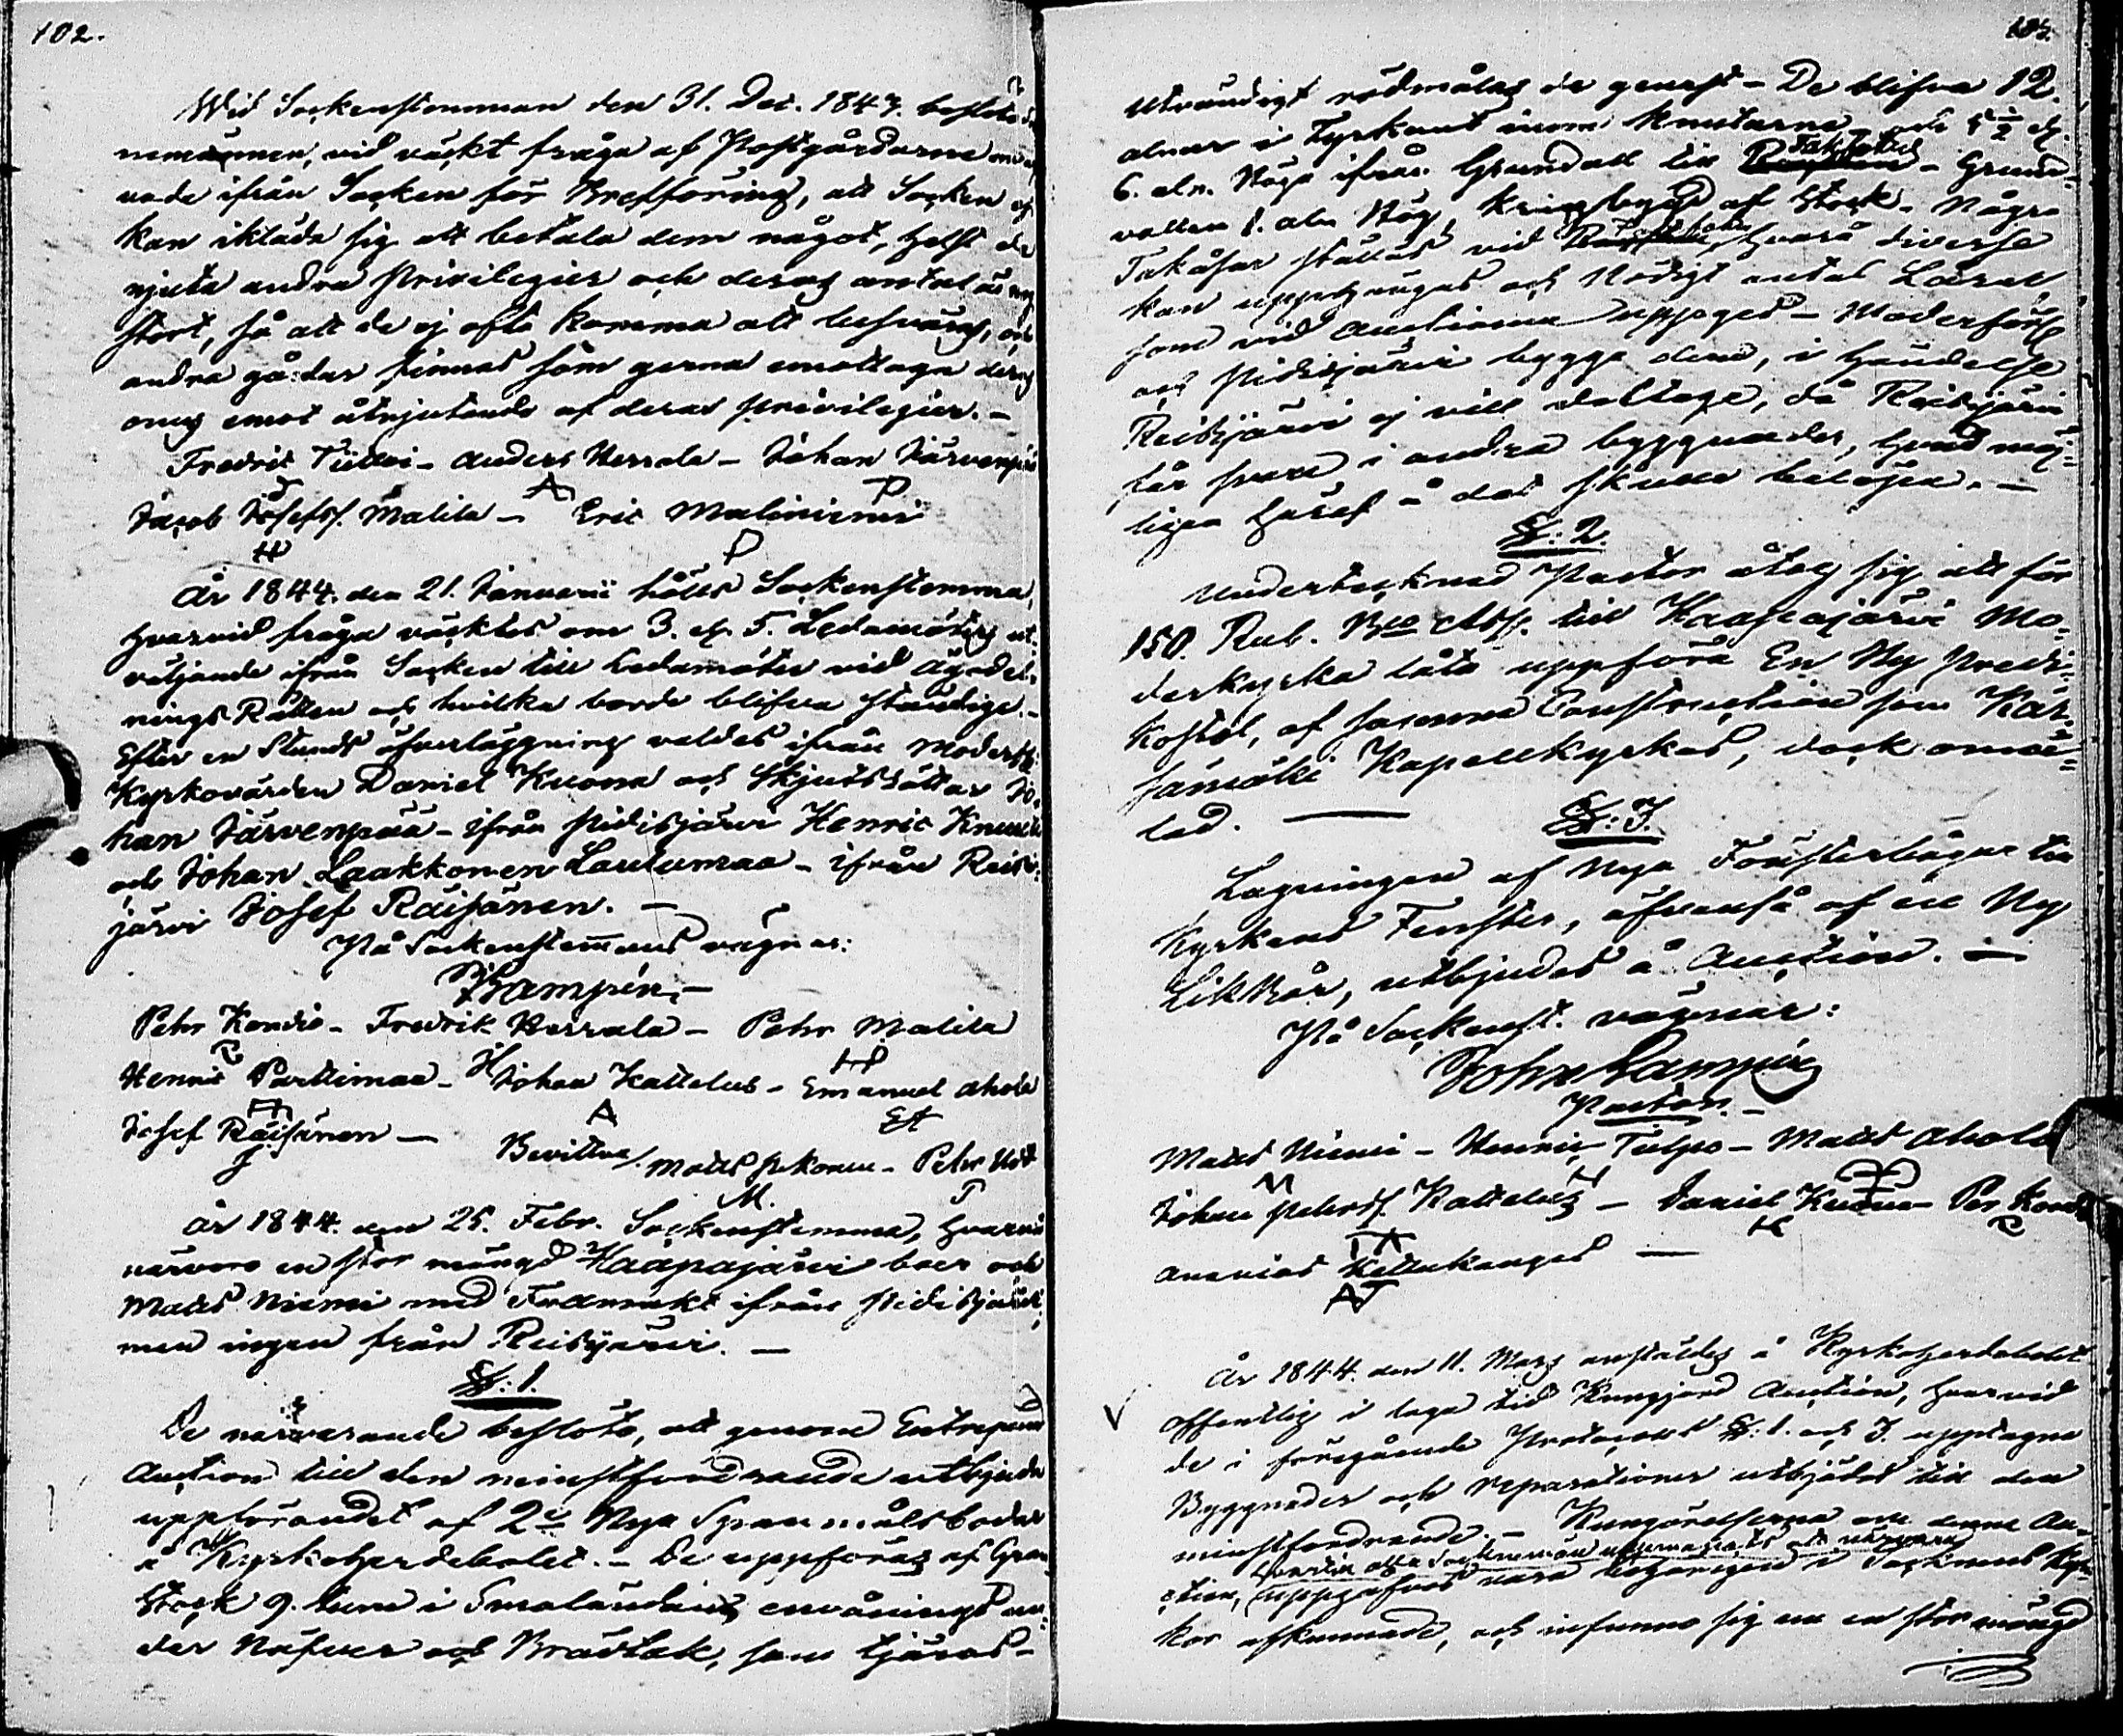 102.
Wid Sockenstomman den 31. Dec. 1843. beslöto
nemännen, vid väckt fråga af Postgårdarne
vade ifrån Socken för Brefföring, att Socken ej
kan ikläda sig att betala dem något, helst de
njuta andra privilegier och deras antal är nog
stort, så att de ej ofta komma att besväras, och
andra gårdar finnas som gerna emottaga deras
omg emot åtnjutande af deras privilegier. –
Fredric Tiitto – Anders Verrala – Johan Järvenpää
Jacob Josefss. Malila – Eric Maliniemi
År 1844. den 21. Januarii hölls Sockenstemma,
hvarvid fråga väcktes om 3. ell. 5. Ledamöters ut-
väljande ifrån Socken till Ledamöter vid Ägodel-
nings Rätten och hvilka borde blifva ständige. –
Efter en Stunds öfverläggning valdes ifrån Moderk.
Kyrkovärden Daniel Kuona och Skjutsrättar Jo-
han Järvenpää – ifrån Pidisjärvi Henric Knuuti
och Johan Laakkonen Lautamaa – ifrån Reis-
järvi Josef Räisänen. –
På Sockenstemmans vägnar:
J Lampén. –
Pehr Kondio – Fredrik Verrala – Pehr Malila
P H HP
Henric Parttimaa – Johan Kattelus – Emanuel Ahola
A EA
Josef Räisänen – Bevittna/ Matts Pekonen – Pehr
J M. P
År 1844. den 25. Febr. Sockenstemma, hvarvid
närvoro en stor mängd Haapajärvi boer och
Matts Niemi med Framrukt ifrån Pidisjärvi,
men ingen från Reisjärvi. –
§: 1.
De närvarande beslöto, att genom Entreprenad
Auction till den minstfordrande utbjuda
uppförandet af 2:e Nya Spannmålsbodar
å Kyrkoherdebolet. – De uppföras af Gran
Stock 9. tum i Smaländan, envånings un-
der Näfver och Brädtak, som tjäras –
103.
Utvändigt rödmålas de genast – De blifva 12.
alnar i Fyrkant inom Knutarne och 5 ½ ell.
6. aln. Höga ifrån Grundvall till Takfoten – Grund-
vallen 1. aln Hög, kringlagd af Stock – Några
Takåsar ställas vid Takfoten, hvarå diverse
kan upphängas och Nödigt antal Lårar,
som vid Auctionen uppges – Moderförs.
och Pidisjärvi bygge dem, i händelse
Reisjärvi ej vill deltaga, då Reisjärvi
får svara i andra byggnader, hvad möj-
ligen häraf å det skulle belöpa. –
§: 2.
Undertecknad Pastor åtog sig att för
150. Rub. B:co Ass. till Haapajärvi Mo-
derkyrka låta uppföra En Ny Predi-
kostol, af samma Construction som Kär-
sämäki Kapellkyrkas, dock omå-
lad. –
§: 3.
Lagningen af Nya Fönsterbågar till
Kyrkans Fenster, äfvenså af en Ny
Likbår, utbjudes å Auction. –
På Sockenst. vägnar:
John Lampén
Pastor. –
Matts Niemi – Henric Tulpo – Matts Ahola
M
Johan Pehrss. Kattelus – Daniel Kuona – Per Kondio
Ananias Kettukangas –
AJ
År 1844. den 11. Mars anställdes å Kyrkoherdebolet
offentlig i laga tid Kungjord Auction, hvarvid
de i föregående Protocoll §: 1. och 3. upptagna
Byggnader och reparationer utbjödos till den
minstfordrande. – Kungörelserna om denne Au-
ction, uppgafvos vara behörigen i Socknens Kyr-
kor afkunnade, och infunno sig nu en stor mängd